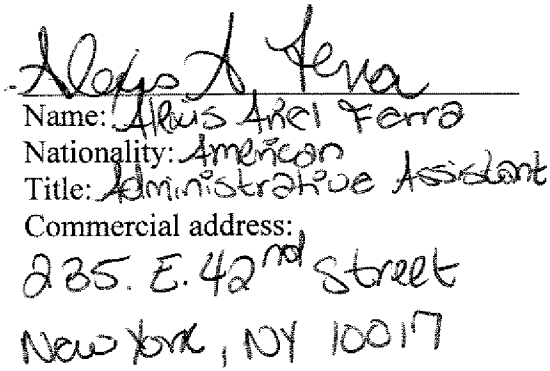 Alexis A Ferra
Name: Alexis Ariel Ferra
Nationality: American
Title: Administrative Assistant
Commercial address:
235. E. 42nd Street
New York, NY 10017